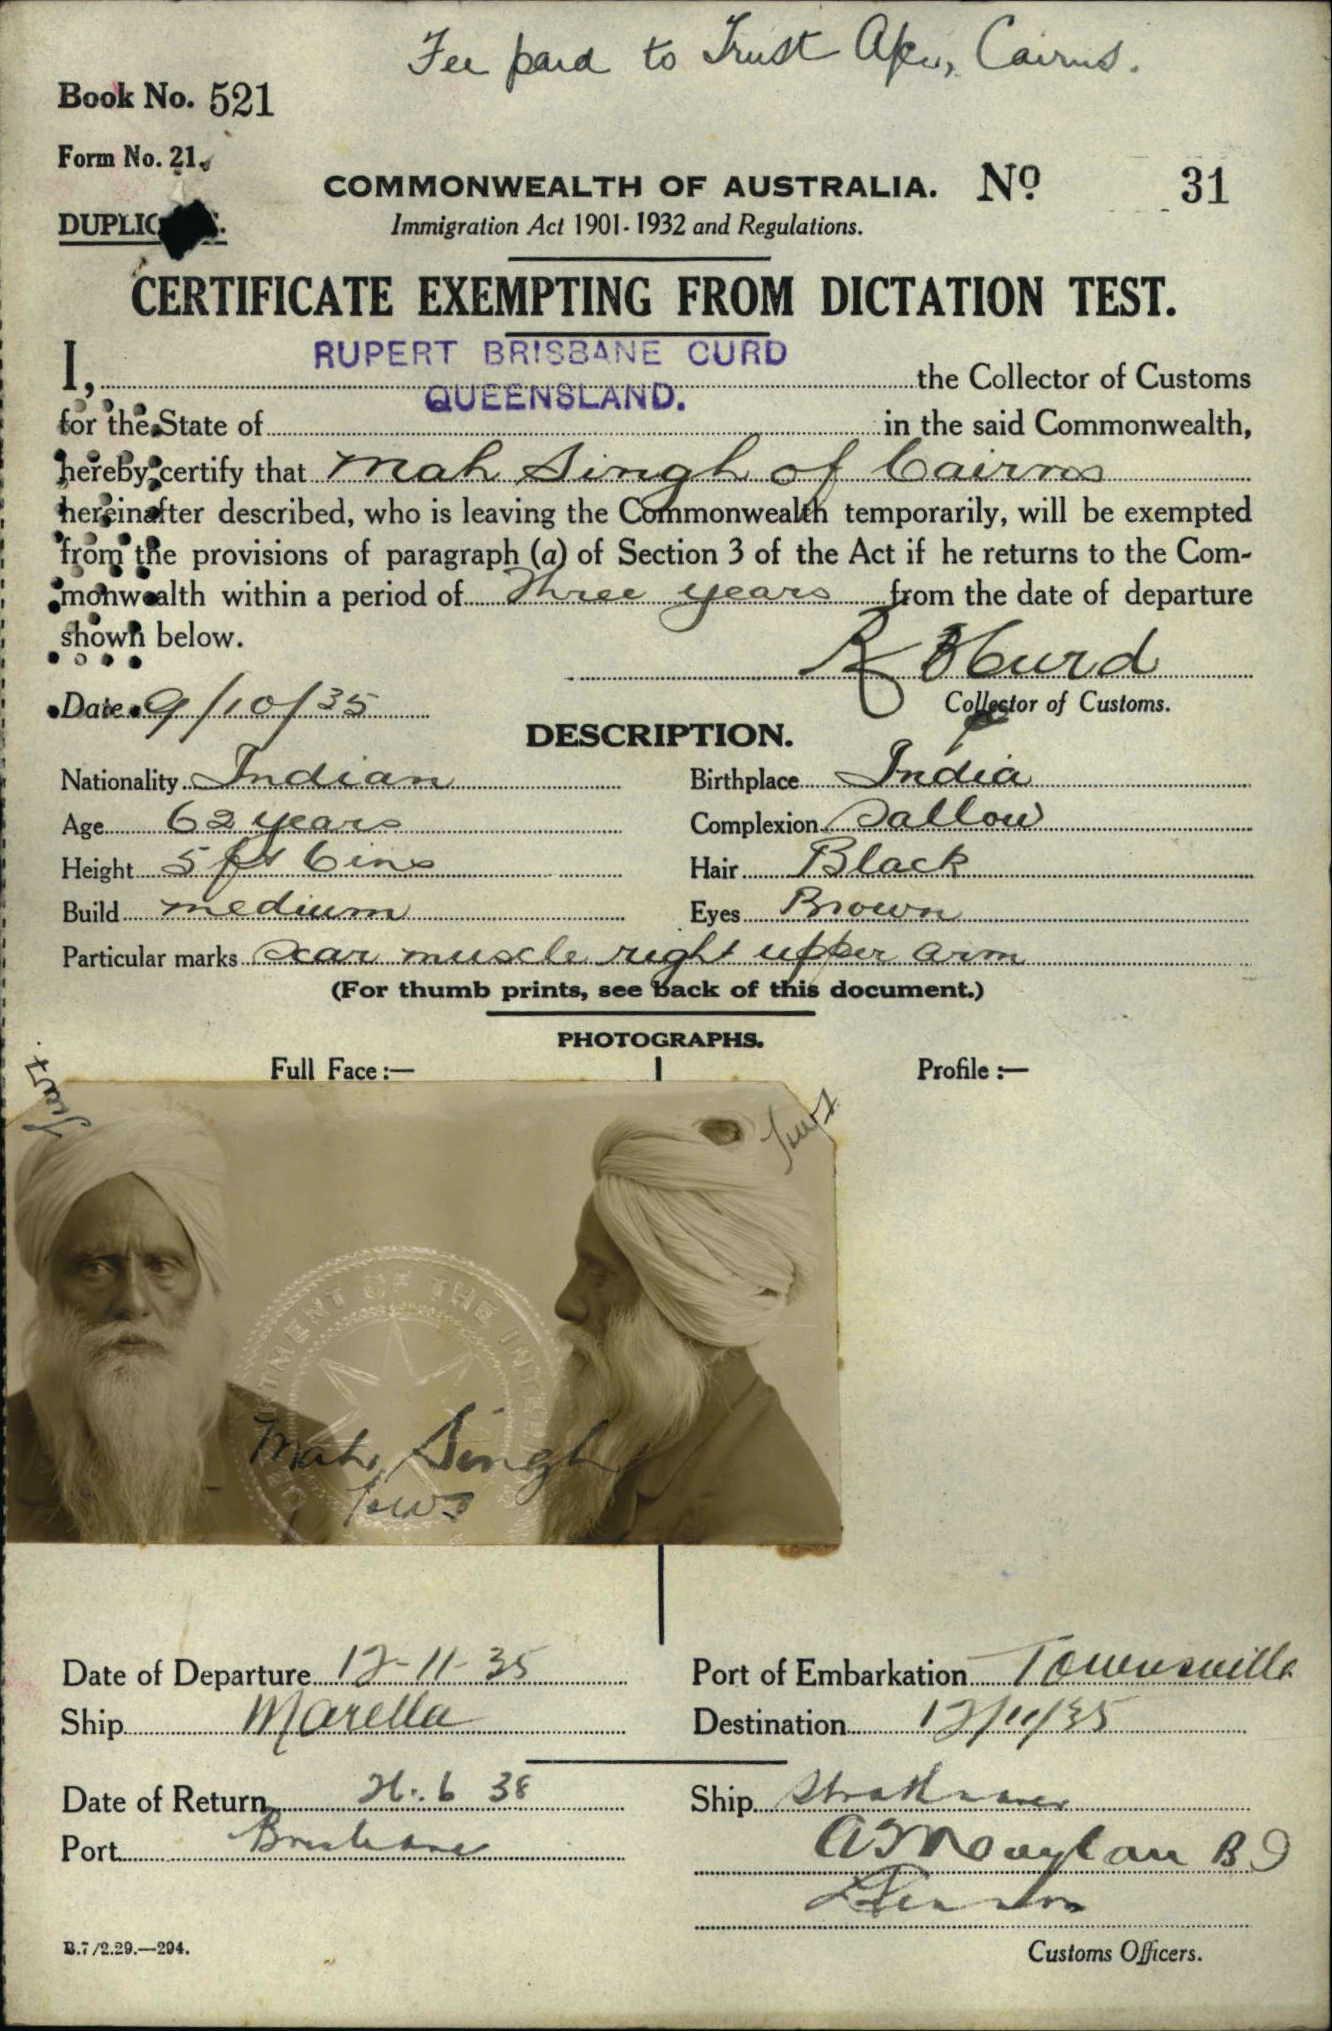 Fee paid to Trust Cairns.
Book No. 521
Form No. 21.
DUPLIC
COMMONWEALTH OF AUSTRALIA. No 31
Immigration Act 1901-1932 and Regulations.
CERTIFICATE EXEMPTING FROM DICTATION TEST.
I, RUPERT BRISBANE CURD the Collector of Customs
for the State of QUEENSLAND. in the said Commonwealth,
hereby certify that Mah Singh of Cairns
hereinafter described, who is leaving the Commonwealth temporarily, will be exempted
from the provisions of paragraph (a) of Section 3 of the Act if he returns to the Com-
monwealth within a period of Three years from the date of departure
shown below.
R B Curd
Date 9/10/35 Collector of Customs.
DESCRIPTION.
Nationality Indian Birthplace India
Age 62 years Complexion Sallow
Height 5 ft 6 ins Hair Black
Build medium Eyes Brown
Particular marks Scar muscle right upper arm
(For thumb prints, see back of this document.)
PHOTOGRAPHS.
Full Face :— Profile :—
TMENT OF THE INTER
Mah Singh
Date of Departure 12-11-35 Port of Embarkation Townsville
Ship Marella Destination 12/11/35
Date of Return 6 38 Ship
Port Brisbane
Customs Officers.
B.7/2.29.—294.